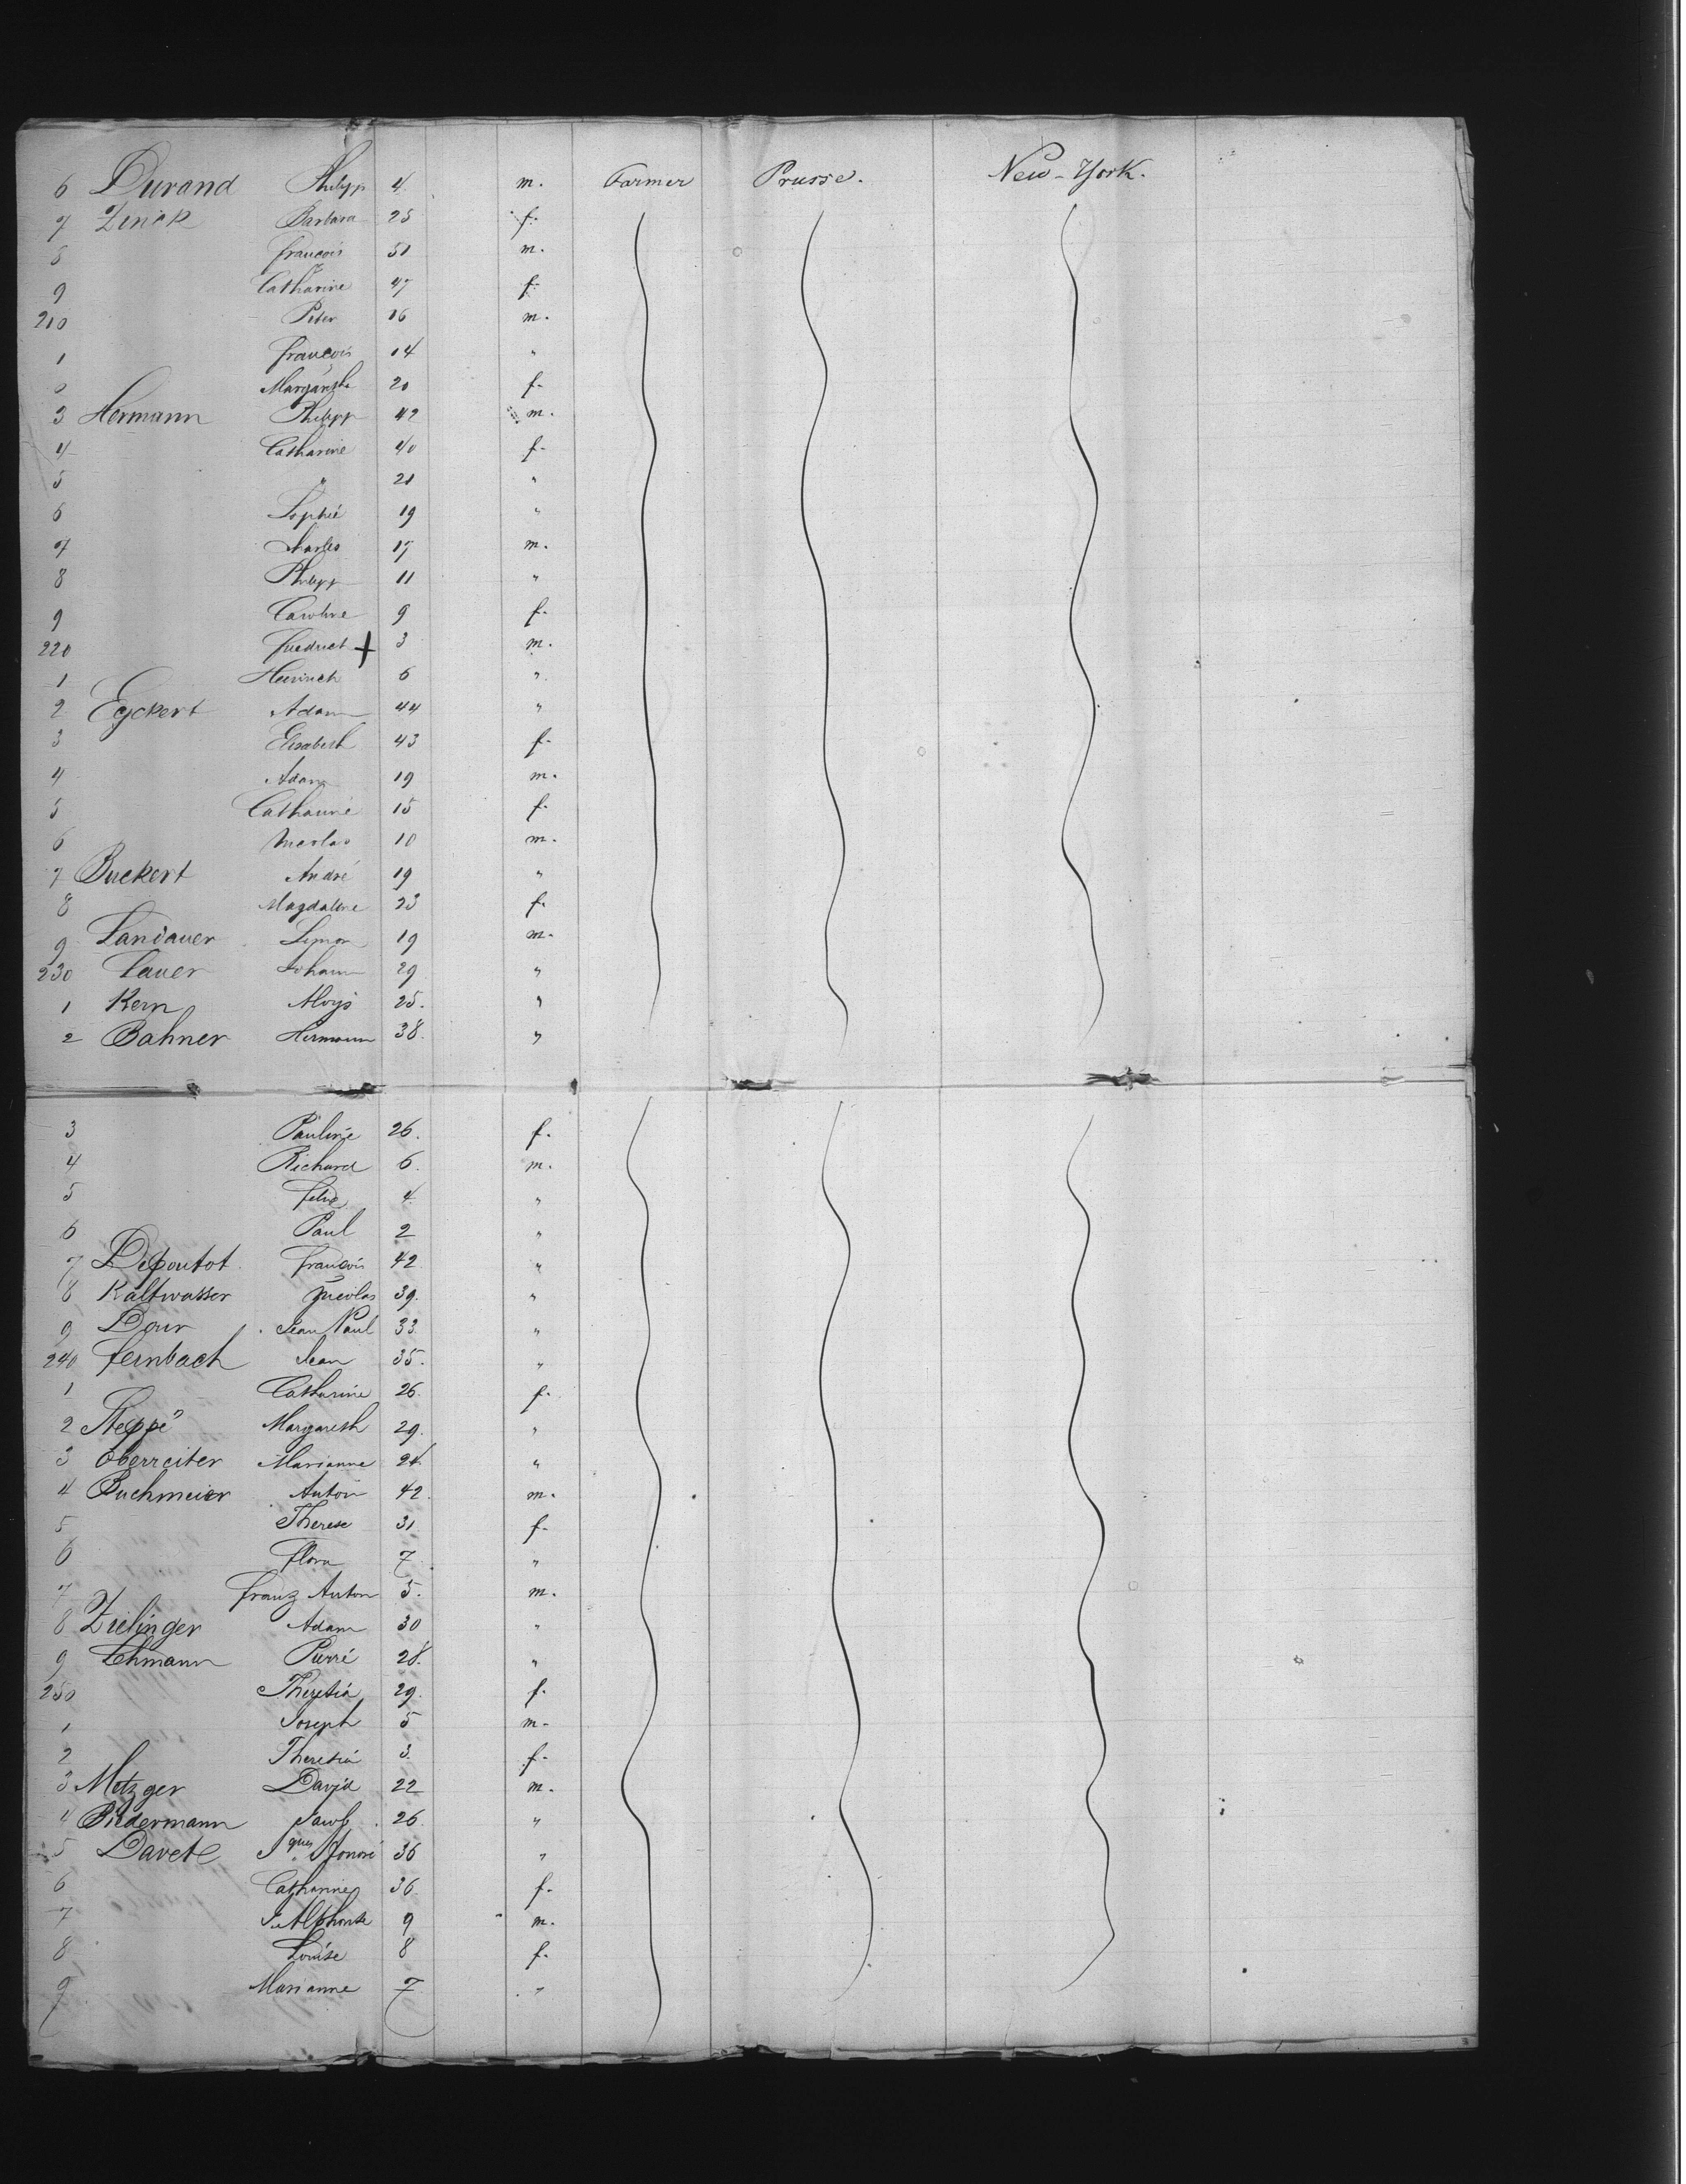 6 Durand Philipp 4 m. Farmer Prusse. New-York.
7 Zinck Barbara 25 f.
8 François 51 m.
9 Catharine 47 f.
210 Peter 16 m.
1 François 14 "
Margareth 20 f.
3 Hermann Philipp 42 m.
4 Catharine 40 f.
5 " 21 "
6 Sophie 19 "
7 Charles 17 m.
8 Philipp 11 "
9 Caroline 9 f.
220 Friedrich + 3 m.
1 Heinrich 6 "
2 Eyckert Adam 44 "
3 Elisabeth 43 f.
4 Adam 19 m.
5 Catharine 15 f.
6 Nicolas 10 m.
7 Buckert André 19 "
8 Magdalene 23 f.
9 Landauer Simon 19 m.
230 Lauer Johann 29 "
1 Kern Aloys 25. "
2 Bahner Hermann 38. "
3 Pauline 26. f.
4 Richard 6. m.
5 Felix 4 "
6 Paul 2 "
7 Depoutot François 42 "
8 Kaltwasser Nicolas 39. "
9 Dour Jean Paul 33 "
240 Fernbach Jean 35. "
1 Catharine 26. f.
2 Steppé Margareth 29. "
3 Oberreiter Marianne 24 "
4 Buchmeier Anton 42. m.
5 Therese 31 f.
6 Flora 7 "
7 Franz Anton 5. m.
8 Zielinger Adam 30 "
9 Lehmann Pierre 28. "
250 Theresia 29. f.
1 Joseph 5 m.
2 Theresia 3. f.
3 Metzger David 22 m.
4 Biedermann Jacob 26 "
5 Davete Jques Honoré 36 "
6 Catharine 36. f.
7 J. Alphonse 9 m.
8 Louise 8 f.
9 Marianne 7 "